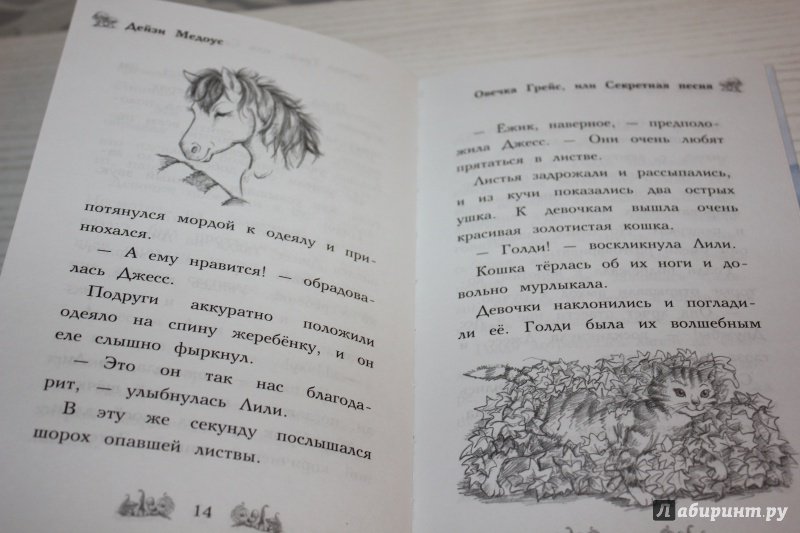 Дейзи Медоус
потянулся мордой к одеялу и при-
нюхался.
— А ему нравится! — обрадова-
лась Джесс.
Подруги аккуратно положили
одеяло на спину жеребёнку, и он
еле слышно фыркнул.
— Это он так нас благода-
рит, — улыбнулась Лили.
В эту же секунду послышался
шорох опавшей листвы.
14
Овечка Грейс, или Секретная песня
— Ежик, наверное, — предполо-
жила Джесс. — Они очень любят
прятаться в листве.
Листья задрожали и рассыпались,
и из кучи показались два острых
ушка. К девочкам вышла очень
красивая золотистая кошка.
— Голди! — воскликнула Лили.
Кошка тёрлась об их ноги и до-
вольно мурлыкала.
Девочки наклонились и поглади-
ли её. Голди была их волшебным
Лабиринт.ру